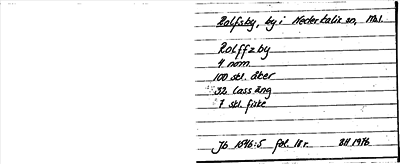 Rolfsby, by i Nederkalix sn, Nbl.
Rolffzby
4 nom
100 skl. åker
32 lass äng
7 skl. fiske
Jb 1646:5 fol. 18 r. BH 1976